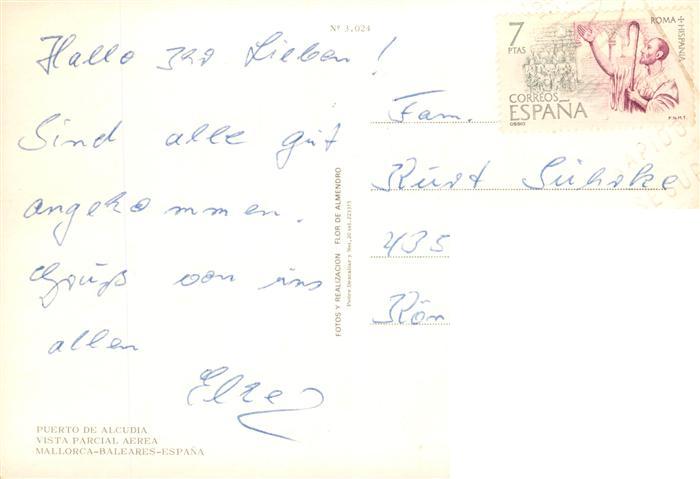 Nº 3,024
Hallo Ihr Lieben!
Sind alle gut
angekommen.
Gruß von uns
allen
Elke
PUERTO DE ALCUDIA
VISTA PARCIAL AEREA
MALLORCA-BALEARES-ESPAÑA
FOTOS Y REALIZACION FLOR DE ALMENDRO
7
PTAS
ROMA + HISPANIA
CORREOS
ESPAÑA
OSSIO
F.N.M.T.
Fam.
Kurt
435